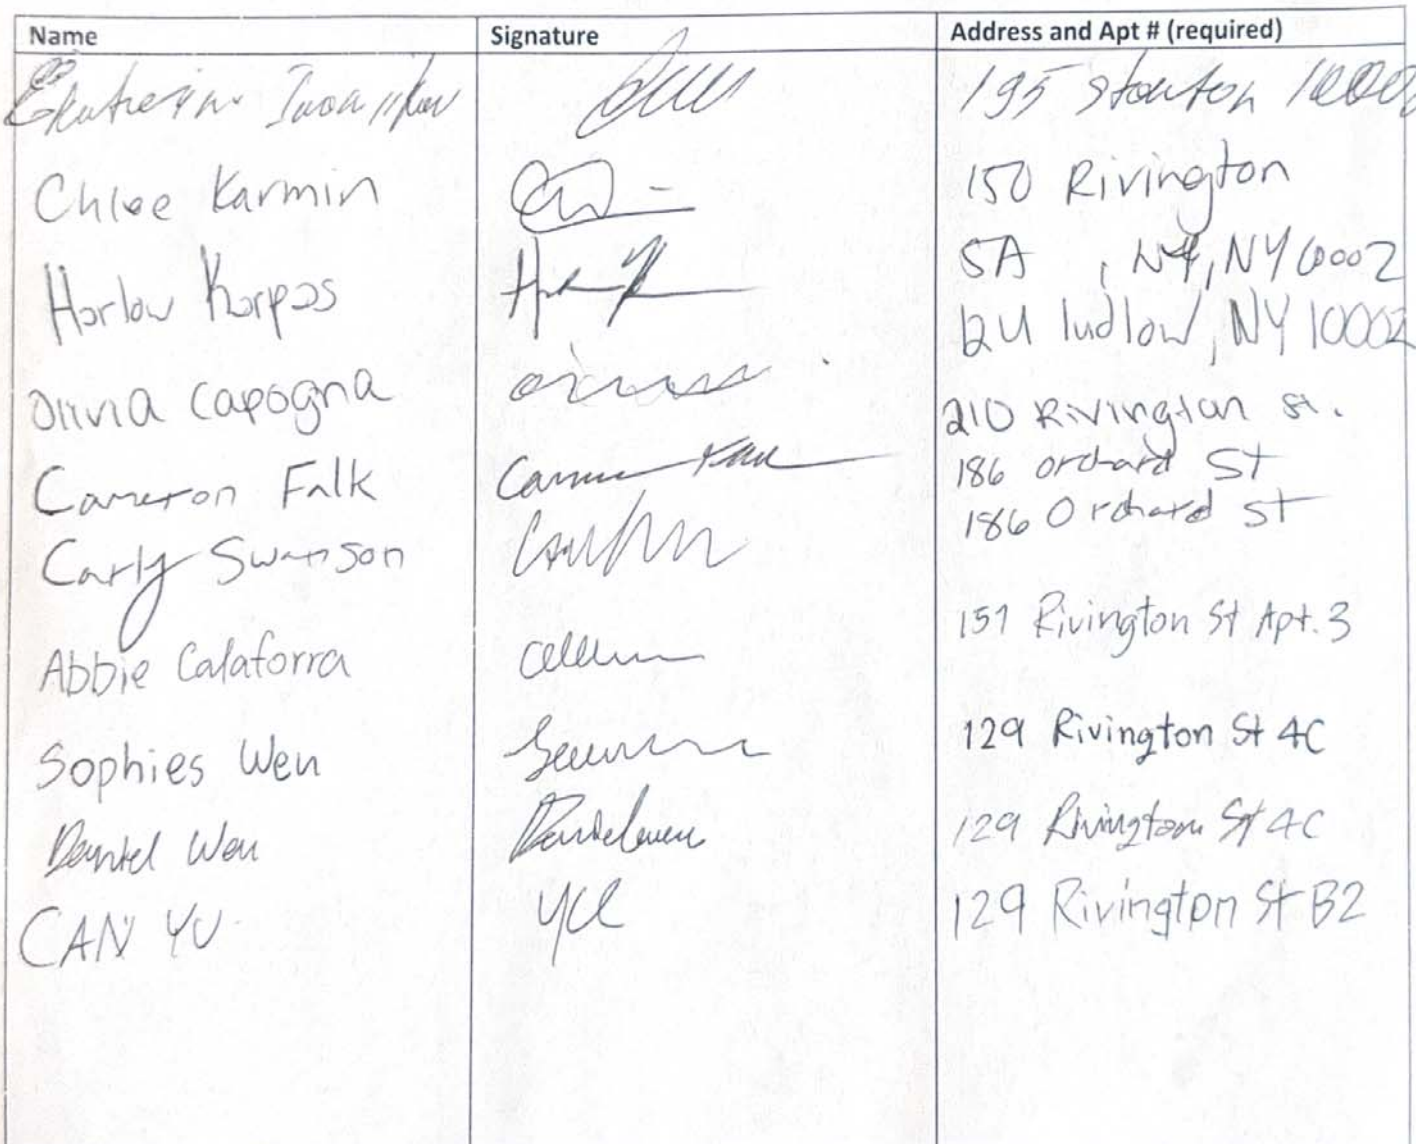 Name Signature Address and Apt # (required)
195 10002
Chloe Karmin 150 Rivington
5A , NY, NY 10002
Harlow Karpas 124 ludlow, NY 10002
Olivia Capogna 210 Rivington St.
Cameron Falk 186 orchard St
Carly Swanson 186 Orchard St
Abbie Calaforra 151 Rivington St Apt. 3
Sophies Wen 129 Rivington St 4C
Daniel Wen 129 Rivington St 4C
CAN YU YCL 129 Rivington St B2